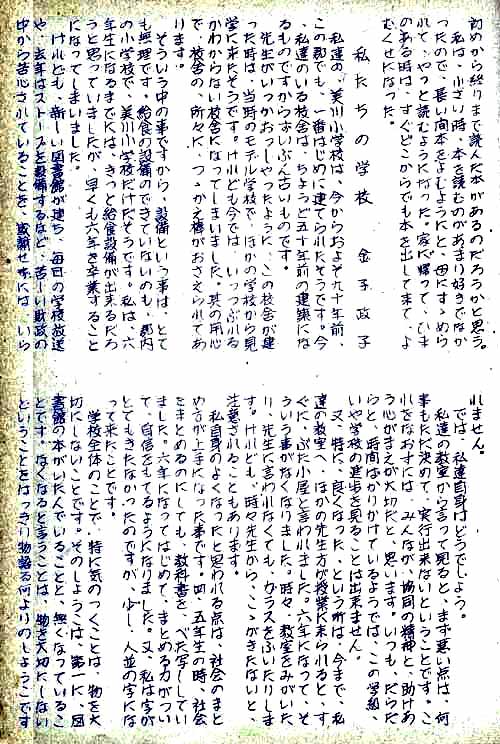 初めから終りまで読んだ本があるのだろうかと思う。
私は、小さい時、本を読むのがあまり好きでなか
ったので、長い間本をよむようにと、母にすゝめら
れて、やっと読むようになった。家へ帰って、ひま
のある時は、すぐどこからでも本を出してきて、よ
むくせになった。
私たちの学校 金子政子
私達の、美川小学校は、今からおよそ九十年前、
この郡でも、一番はじめに建てられたそうです。今
、私達のいる校舎は、ちょうど五十年前の建築にな
るものですからずいぶん古いものです。
先生がいつかおっしゃったように、この校舎が建
った時は、当時のモデル学校で、ほかの学校から見
学に来たそうです。けれども今では、いつつぶれる
かわからない校舎になってしまいました。其の用心
で、校舎の、所々に、つゝかえ棒がおさえられてあ
ります。
そういう中の事ですから、設備という事は、とて
も無理です。給食の設備のできていないのも、郡内
の小学校で、美川小学校だけだそうです。私は、六
年生になるまでには、きっと給食設備が出来るだろ
うと思っていましたが、早くも六年を卒業すること
になってしまいました。
けれども、新しい図書館が建ち、毎日の学校放送
や、去年はストーブを設備するなど、苦しい財政の
中から苦心されていることを、感謝せずには、いら
れません。
では、私達自身はどうでしょう。
私達の教室から言って見ると、まず悪い点は、何
事もただ決めて、実行出来ないということです。こ
れをなおすには、みんなが、協同の精神と、助けあ
う心がまえが大切だと思います。いつも、だらだ
らと、時間ばかりかけているようでは、この学級、
いや学校の進歩を見ることは出来ません。
又、特に、良くなった、という所は、今まで、私
達の教室へ、ほかの先生方が授業に来られると、す
ぐに、ぶた小屋と言われました。六年になって、そ
ういう事がなくなりました。時々、教室をみがいた
り、先生に言われなくても、ガラスをふいたりしま
す。けれども、時々先生から、こゝがきたないと、
注意されることもあります。
私自身のよくなったと思われる点は、社会のまと
め方が上手になった事です。四、五年生の時、社会
をまとめるのにしても、教科書を、べた写ししてい
ました。六年になってはじめて、まとめる力がつい
て、自信をもてるようになりました。又、私は字が
とてもきたなかったのですが、少し、人並の字にな
って来たことです。
学校全体のことで、特に気のつくことは、物を大
切にしないことです。そのしょうこは、第一に、図
書館の本がいたんでいることと、無くなっているこ
とです。なくなると言うことは、物を大切にしない
ということをはっきり物語る何よりのしょうこです